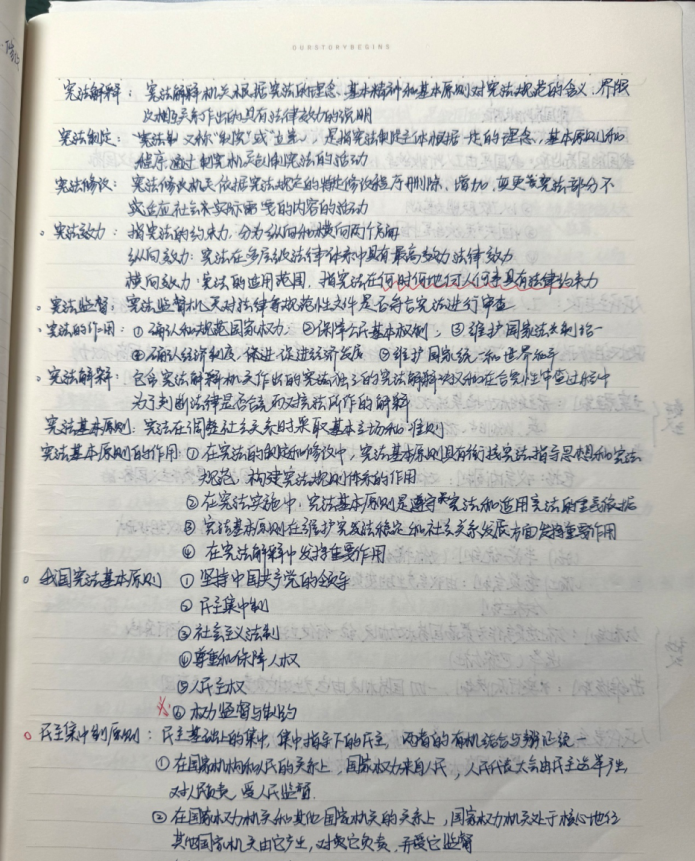 OURSTORYBEGINS
宪法解释：宪法解释机关根据宪法的理念、基本精神和基本原则对宪法规范的含义、界限
及相互关系作出的具有法律效力的说明
宪法制定：宪法制 又称"制宪"或"立宪"，是指宪法制定主体根据一定的理念，基本原则和
程序，通过制宪机关创制宪法的活动
宪法修改：宪法修改机关依据宪法规定的特别修改程序删除，增加，变更宪法部分不
适应社会实际需要的内容的活动
宪法效力：指宪法的约束力，分为纵向和横向两个方面
纵向效力：宪法在多层级法律体系中具有最高效力法律效力
横向效力：宪法的适用范围，指宪法在何时何地何人何事具有法律约束力
宪法监督：宪法监督机关对法律等规范性文件是否符合宪法进行审查
宪法的作用：①确认和规范国家权力 ②保障公民基本权利，③维护国家法制统一
④确认经济制度，促进经济发展 ⑤维护国家统一和世界和平
宪法解释：包含宪法解释机关作出的宪法独立的宪法解释决议和在合宪性审查过程中
为了判断法律是否合宪而对宪法所作的解释
宪法基本原则：宪法在调整社会关系时采取基本立场和准则
宪法基本原则的作用：①在宪法的制定和修改中，宪法基本原则具有衔接宪法指导思想和宪法
规范，构建宪法规则体系的作用
②在宪法实施中，宪法基本原则是遵守宪法和适用宪法的重要依据
③宪法基本原则在维护宪法稳定和社会关系发展方面发挥重要作用
④在宪法解释中发挥重要作用
我国宪法基本原则 ①坚持中国共产党的领导
②民主集中制
③社会主义法制
④尊重和保障人权
⑤人民主权
⑥权力监督与制约
民主集中制原则：民主基础上的集中，集中指导下的民主，两者的有机结合与辩证统
①在国家机构和人民的关系上，国家权力来自人民，人民代表大会由民主选举产生
对人民负责，受人民监督.
②在国家权力机关和其他国家机关的关系上，国家权力机关处于核心地位
其他国家机关由它产生，对它负责，并受它监督